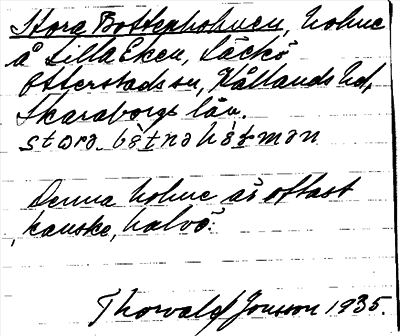 Stora Bottenholmen, holme
å Lilla Eken, Läckö
Otterstads sn, Kållands hd,
Skaraborgs län.
stora bòtnahòɫman
Denna holme är oftast
, kanske, halvö.
Thorvald Jonsson 1935.